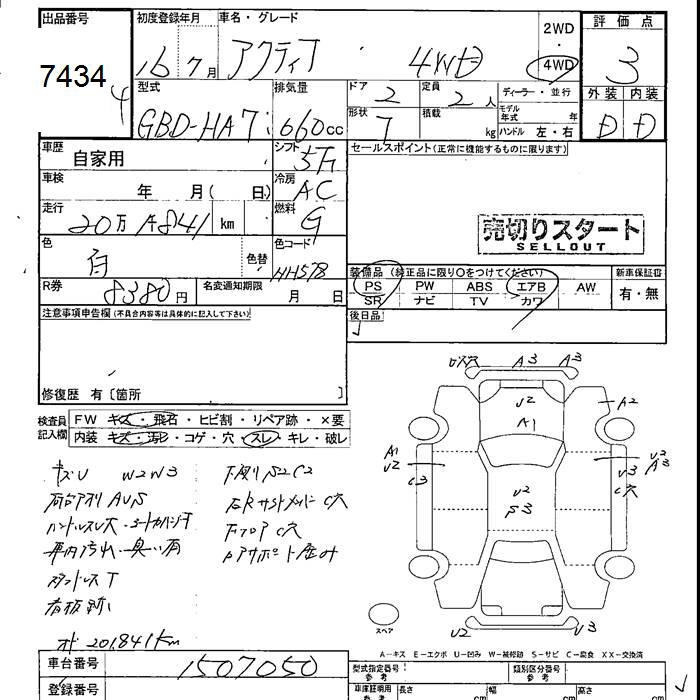 出品番号
7434
4
初度登録年月 車名・グレード
16 7月 アクティ 4WD
2WD
・
4WD
評価点
3
外装 内装
D D
型式 排気量
GBD-HA7 660cc
ドア 定員 ディーラー・並行
2 2人
形状 積載 モデル年式 年
T kg ハンドル 左・右
車歴 シフト セールスポイント(正常に機能するものに限ります)
自家用 5F
車検 冷房
年 月( 日) AC
走行 燃料
20万1841 km G
売切りスタート
SELLOUT
色 色コード
白 色替 NH578
装備品(純正品に限り○をつけてください) 新車保証書
PS PW ABS エアB AW 有・無
SR ナビ TV カワ
R券 名変通知期限
8380円 月 日
注意事項申告欄(不具合内容等は具体的に記入して下さい)
後日品
修復歴 有〔箇所 〕
検査員記入欄
FW キズ・飛石・ヒビ割・リペア跡・×要
内装 キズ・汚レ・コゲ・穴・スレ・キレ・破レ
キズU W2W3
A3 A3
U2
A1
A2
A1
U2
U2
S3
U3
C穴
U2
A3
ハンドルスレ
車内汚れ・臭い有
フロアC穴
看板跡
スペア
U2 U3
オド 201841km
A-キズ E-エクボ U-凹み W-補修跡 S-サビ C-腐食 XX-交換済
車台番号
1507050
登録番号
型式指定番号 参考 類別区分番号 参考
車庫証明用 参考 長さ cm 幅 cm 高さ cm